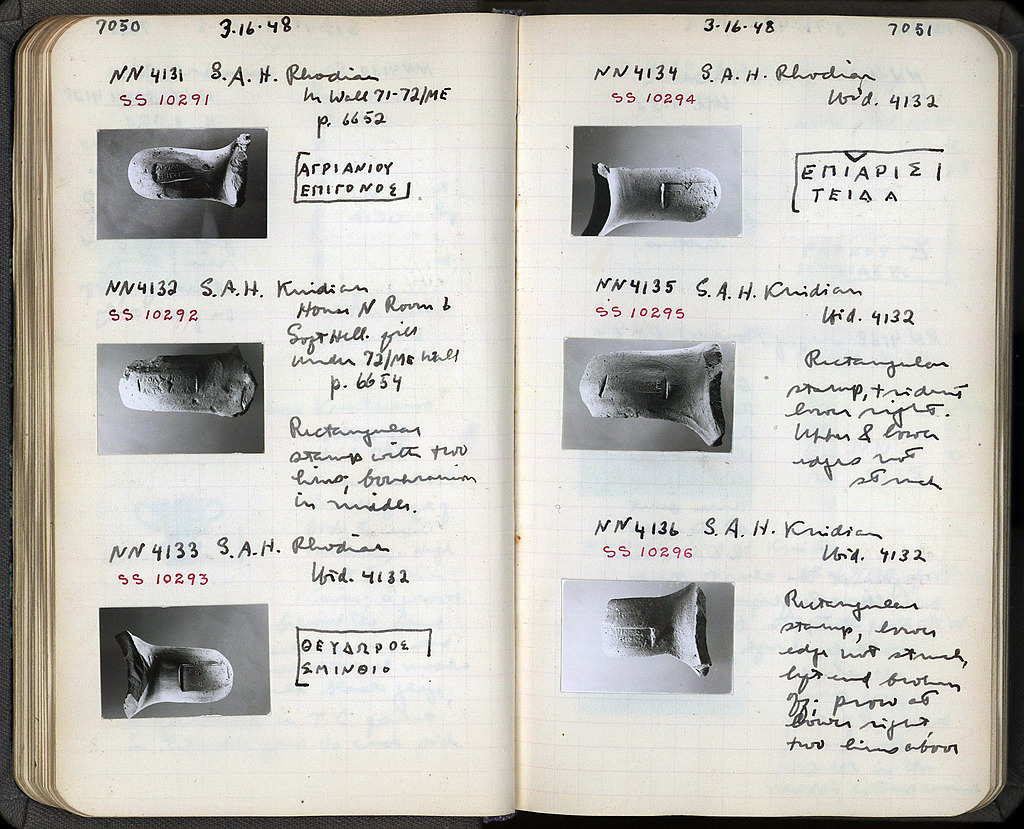 7050 3·16·48
NN 4131 S.A.H. Rhodian
SS 10291 In Wall 71-72/ME
p. 6652
ΑΓΡΙΑΝΙΟΥ
ΕΠΙΓΟΝΟΣ
NN4132 S.A.H. Knidian
SS 10292 House N Room 6
Soft Hell. fill
under 72/ME Wall
p. 6654
Rectangular
stamp with two
lines, boukranion
in middle.
NN 4133 S.A.H. Rhodian
SS 10293 Ibid. 4132
ΘΕΥΔΩΡΟΣ
ΣΜΙΝΘΙΟ
3·16·48 7051
NN 4134 S.A.H. Rhodian
SS 10294 Ibid. 4132
ΕΠΙΑΡΙΣ
ΤΕΙΔΑ
NN 4135 S.A.H. Knidian
SS 10295 Ibid. 4132
Rectangular
stamp, trident
lower right.
Upper & lower
edges not
struck
NN 4136 S.A.H. Knidian
SS 10296 Ibid. 4132
Rectangular
stamp, lower
edge not struck,
left end broken
off. prow at
lower right
two lines above